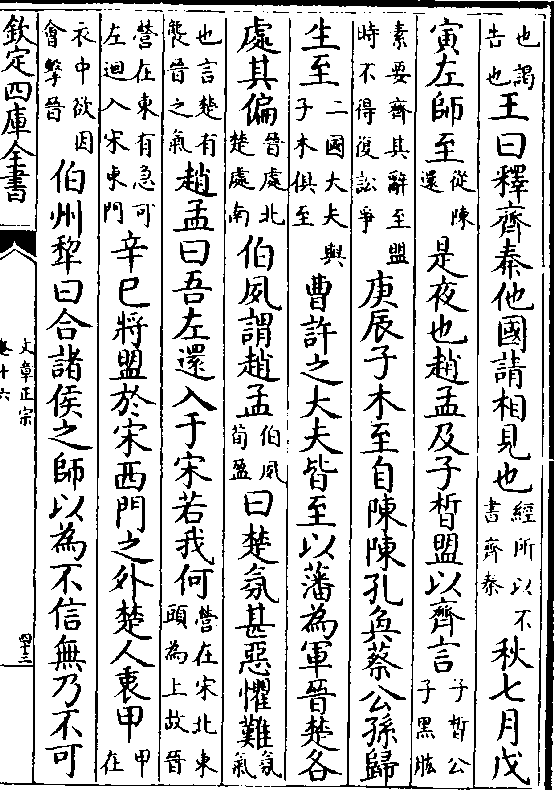 也謁告也王曰釋齊秦他國請相見也經所以不書齊秦秋七月戊
寅左師至從陳還是夜也趙孟及子晳盟以齊言子晳公子黑肱
素要齊其辭至盟時不得復訟爭庚辰子木至自陳陳孔奐蔡公孫歸
生至二國大夫與子木俱至曹許之大夫皆至以藩為軍晉楚各
處其偏晉處北楚處南伯夙謂趙孟伯夙荀盈曰楚氛甚惡懼難氛氣
也言楚有襲晉之氣趙孟曰吾左還入于宋若我何營在宋北東頭為上故晉
營在東有急可左迴入宋東門辛巳將盟於宋西門之外楚人衷甲甲在
衣中欲因會擊晉伯州犁曰合諸侯之師以為不信無乃不可
欽定四庫全書
文章正宗
卷十六
四十三